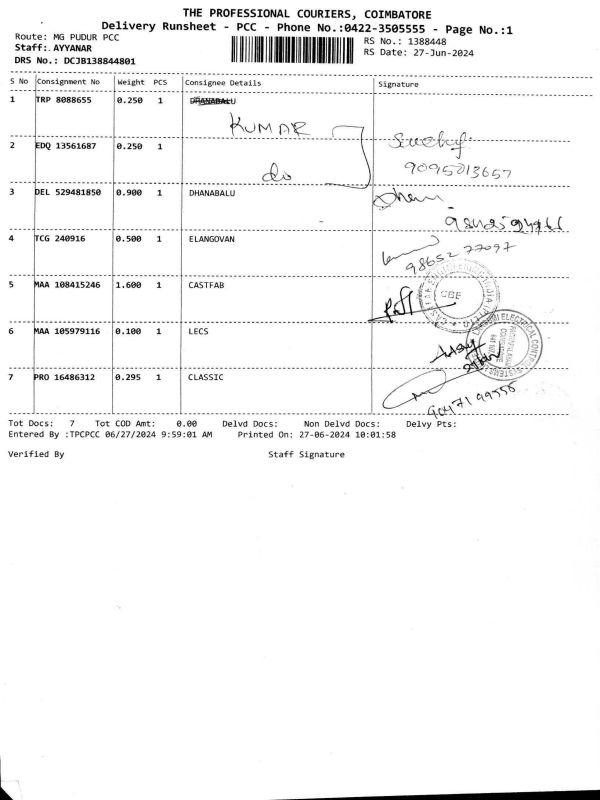 THE PROFESSIONAL COURIERS, COIMBATORE
Delivery Runsheet - PCC - Phone No.:0422-3505555 - Page No.:1
Route: MG PUDUR PCC
RS No.: 1388448
Staff: AYYANAR
RS Date: 27-Jun-2024
DRS No.: DCJB138844801
S No Consignment No Weight PCS Consignee Details Signature
1 TRP 8088655 0.250 1 DHANABALU
KUMAR
2 EDQ 13561687 0.250 1
do
9095013657
3 DEL 529481850 0.900 1 DHANABALU
4 TCG 240916 0.500 1 ELANGOVAN
98652 77097
5 MAA 108415246 1.600 1 CASTFAB
CBE
6 MAA 105979116 0.100 1 LECS
7 PRO 16486312 0.295 1 CLASSIC
Tot Docs: 7 Tot COD Amt: 0.00 Delvd Docs: Non Delvd Docs: Delvy Pts:
Entered By :TPCPCC 06/27/2024 9:59:01 AM Printed On: 27-06-2024 10:01:58
Verified By Staff Signature